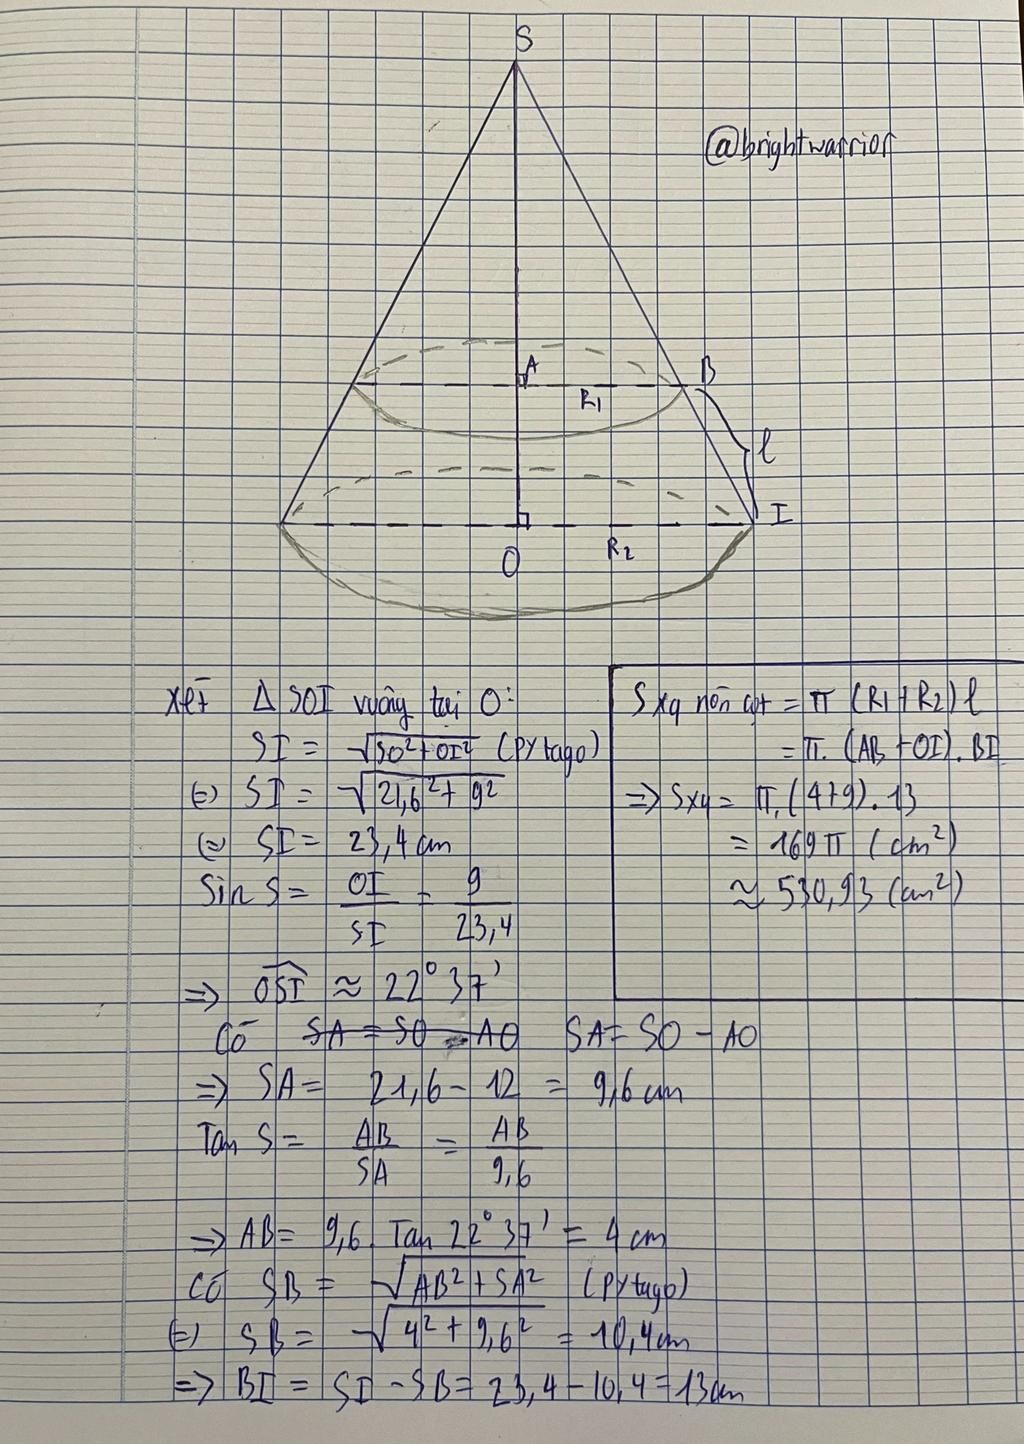 S
@brightwarrior
A
B
R1
l
I
R2
O
Xét Δ SOI vuông tại O:
SI = √SO²+OI² (PYtago)
(=) SI = √21,6²+9²
(=) SI = 23,4 cm
Sin S = OI/SI = 9/23,4
=> OSI ≈ 22°37'
Có SA = SO - AO SA = SO - AO
=> SA = 21,6 - 12 = 9,6 cm
Tan S = AB/SA = AB/9,6
=> AB = 9,6. Tan 22°37' = 4 cm
Có SB = √AB²+SA² (PYtago)
(=) SB = √4²+9,6² = 10,4cm
=> BI = SI - SB = 23,4 - 10,4 = 13cm
Sxq nón cụt = π (R1+R2)l
= π. (AB+OI). BI
=> Sxq = π.(4+9). 13
= 169π (cm²)
≈ 530,93 (cm²)